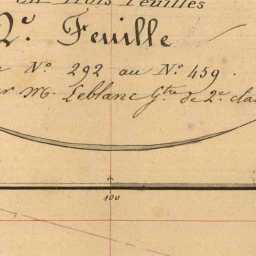 en Trois Feuilles
2.e Feuille
N.o 292 au N.o 459.
M. Leblanc G.tre de 2.e
100